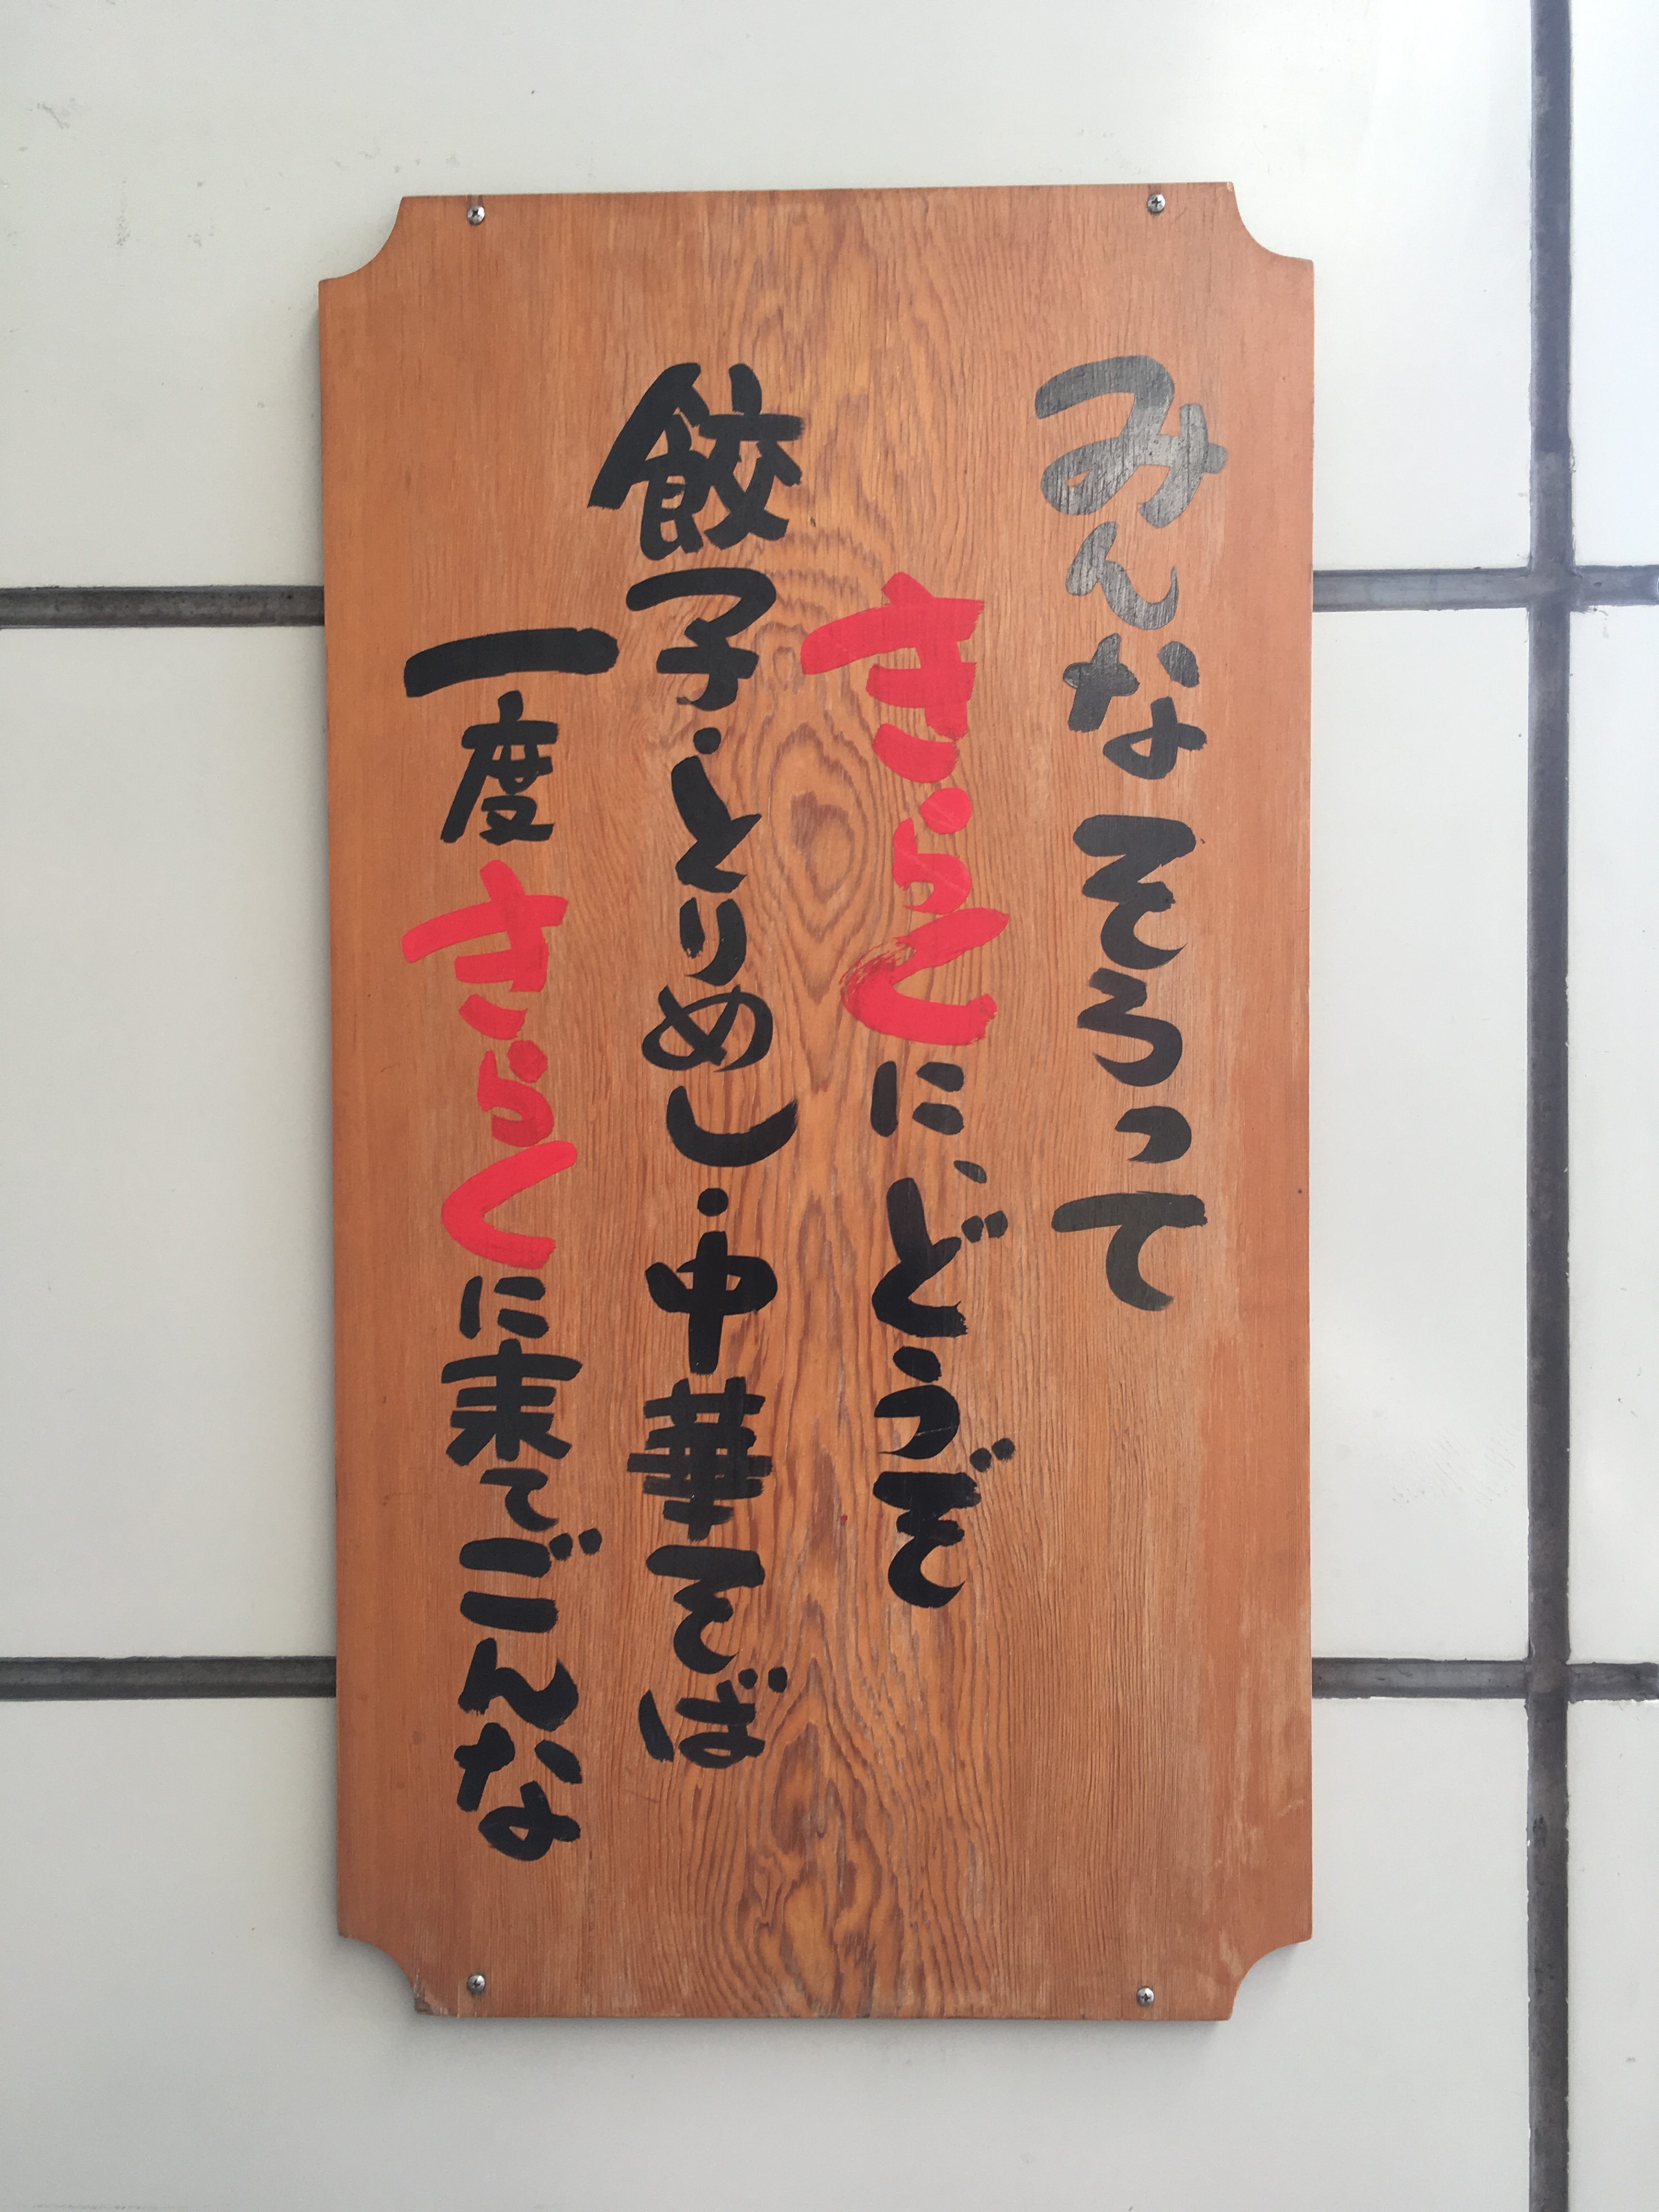 みんなそろって
きらくに、どうぞ
餃子・とりめし・中華そば
一度きらくに来てごんな